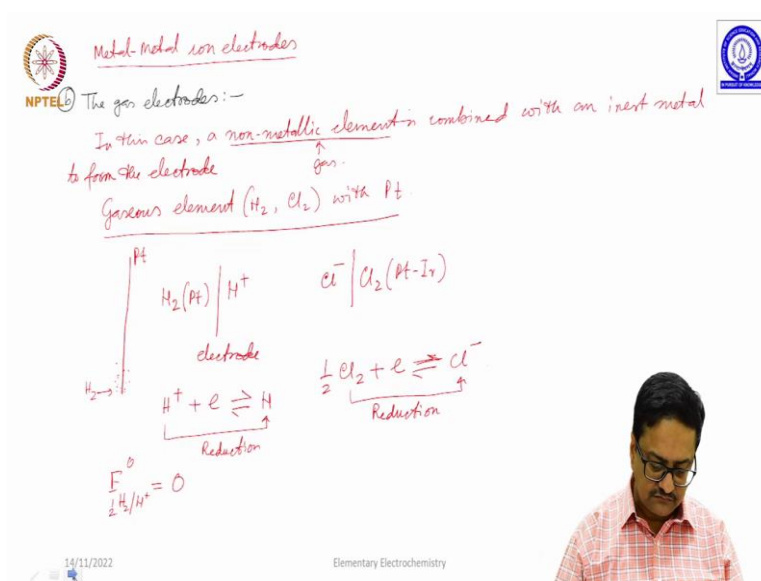 Metal-Metal ion electrodes
NPTEL
(b) The gas electrodes:-
In this case, a non-metallic element is combined with an inert metal
gas.
to form the electrode
Gaseous element (H₂, Cl₂) with Pt.
Pt
H₂(Pt) | H⁺
Cl⁻ | Cl₂(Pt-Ir)
electrode
H₂→
H⁺ + e ⇌ H
Reduction
½ Cl₂ + e ⇌ Cl⁻
Reduction
E⁰ ½H₂/H⁺ = 0
14/11/2022
Elementary Electrochemistry